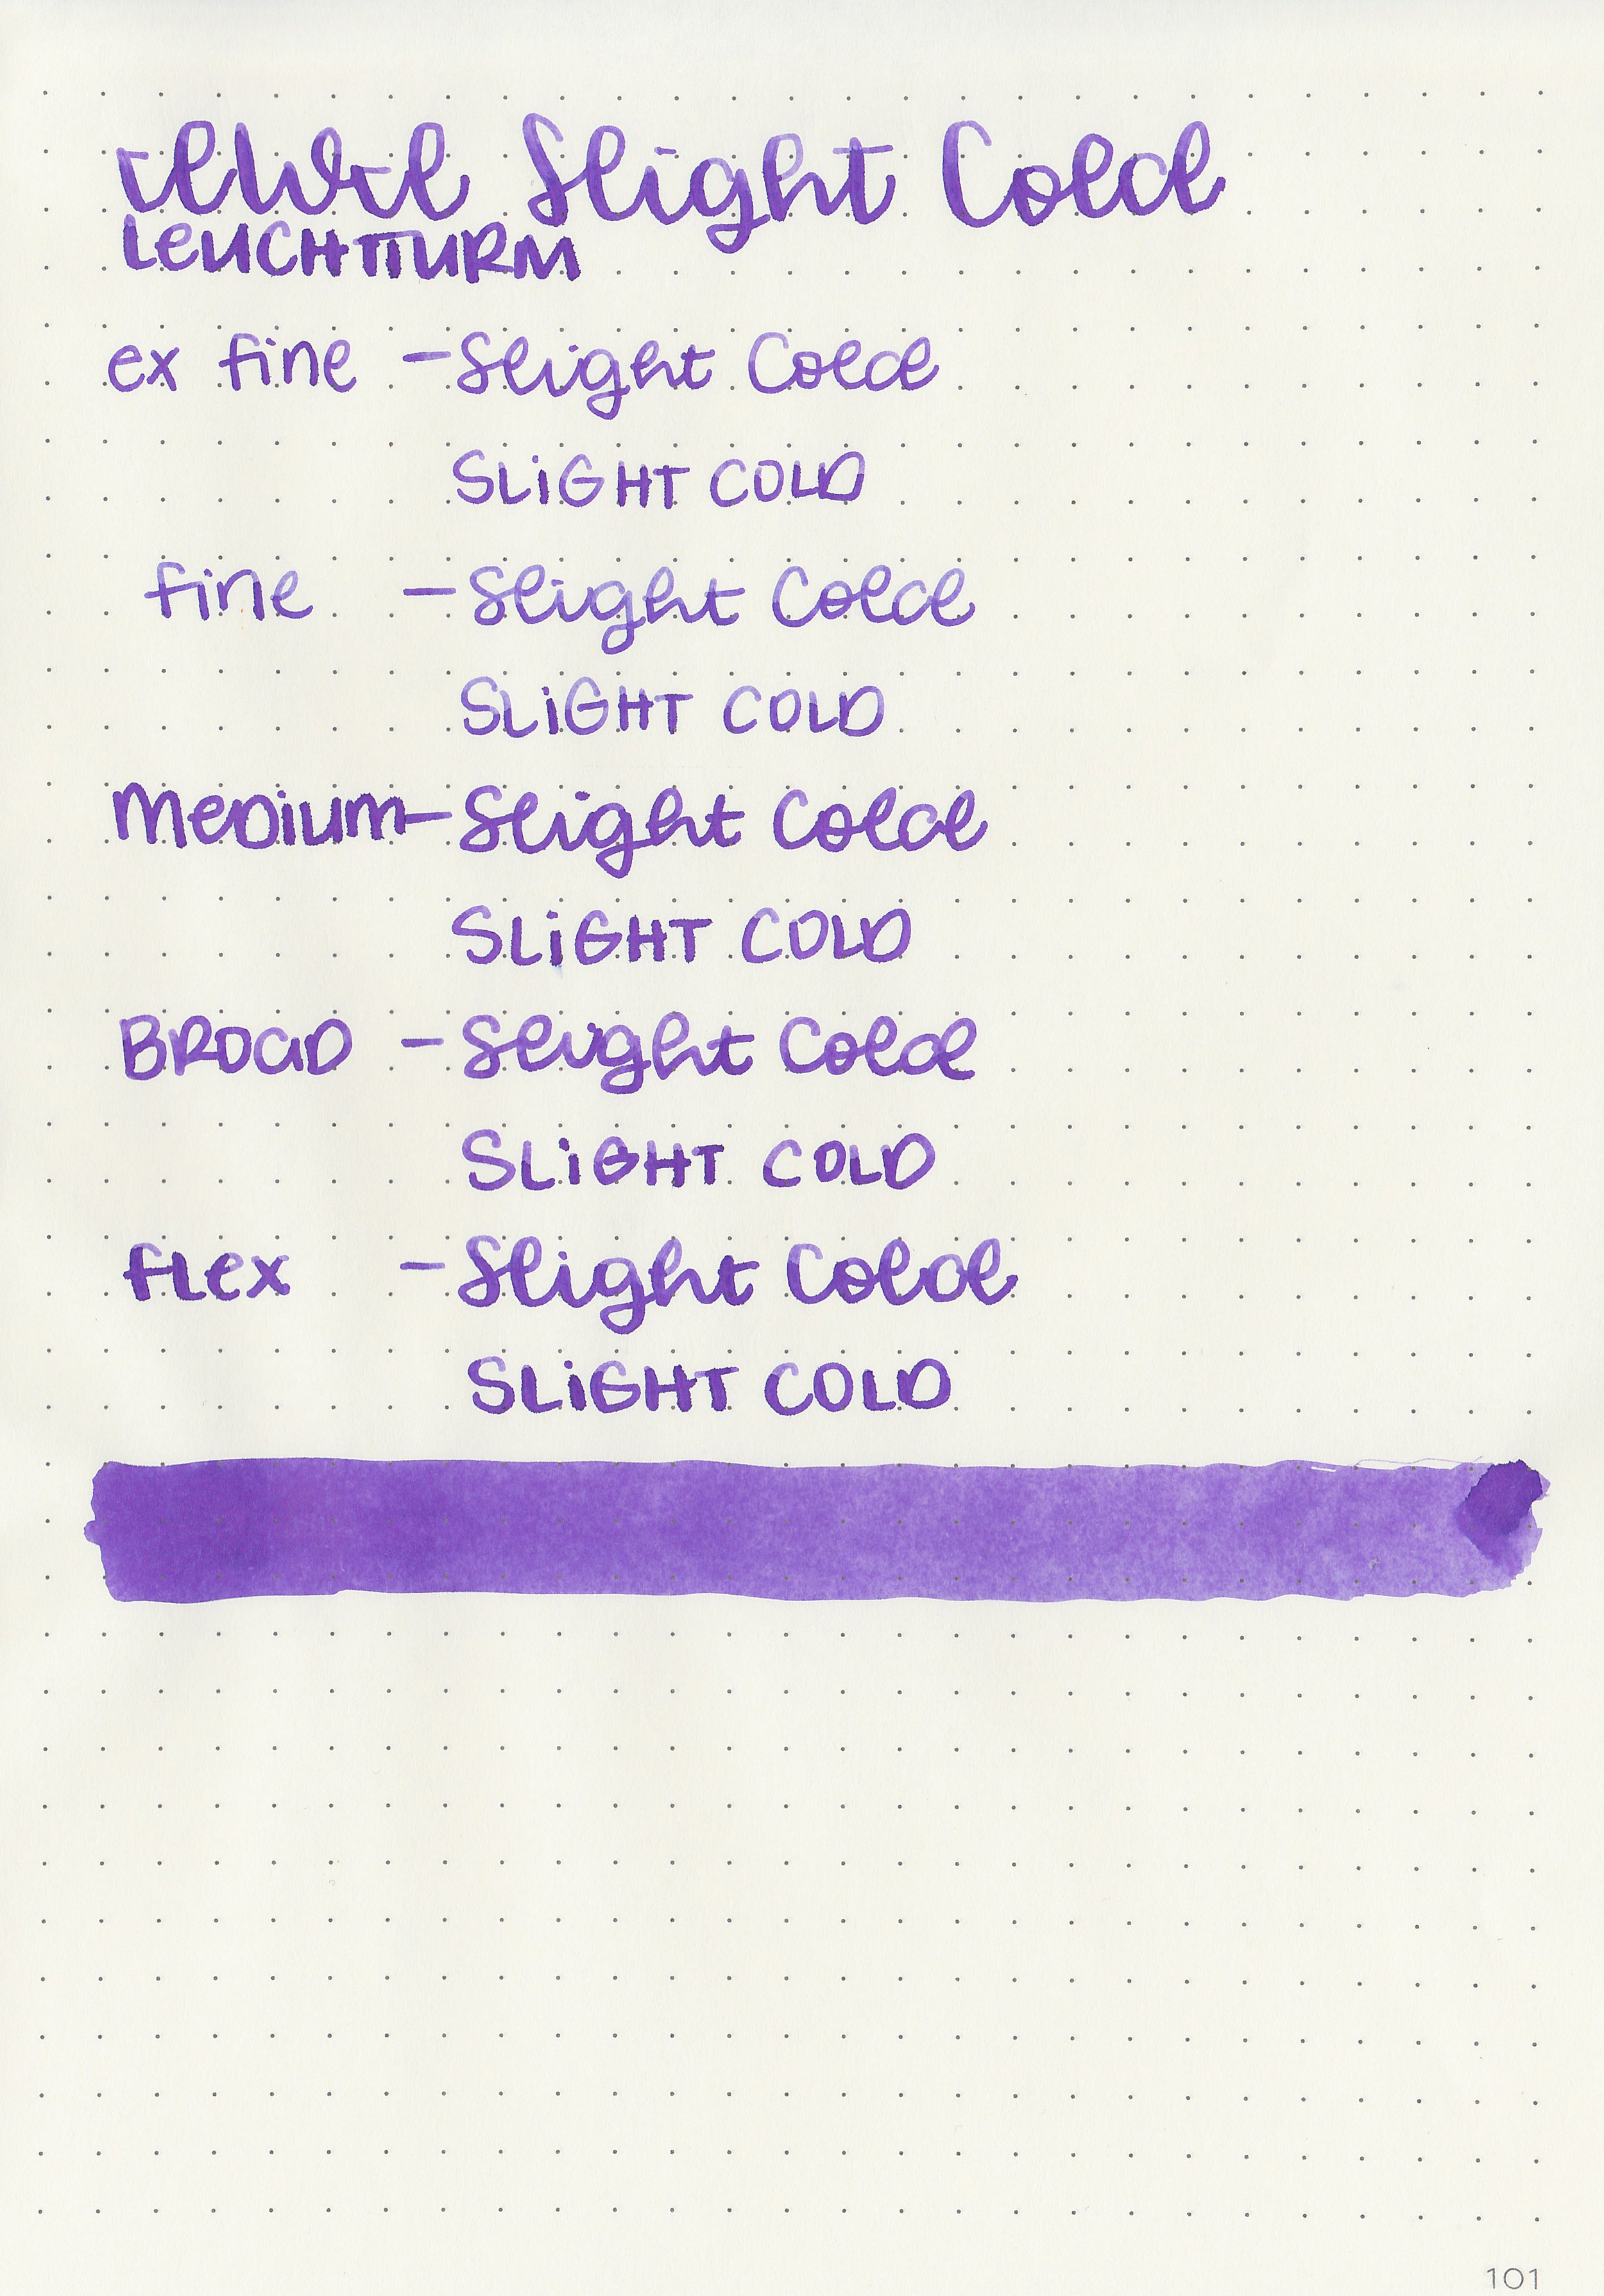 IWI Slight Cold
LEUCHTTURM
ex fine - Slight Cold
SLiGHT COLD
fine - Slight Cold
SLiGHT COLD
MeDium - Slight Cold
SLiGHT COLD
BROaD - Slight Cold
SLiGHT COLD
fLex - Slight Cold
SLiGHT COLD
101